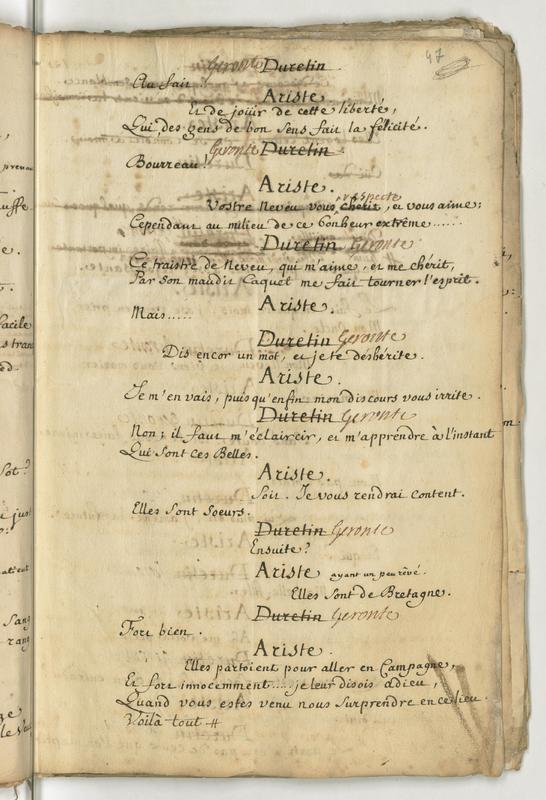 47
Geronte Duretin
Au fait!
Ariste.
Et de joüir de cette liberté,
Qui des gens de bon sens fait la félicité.
Geronte Duretin.
Bourreau!
Ariste.
respecte
Vostre Neveu vous chérit, et vous aime;
Cependant au milieu de ce bonheur extrême.....
Duretin Geronte
Ce traistre de Neveu, qui m'aime, et me chérit,
Par son maudit Caquet me fait tourner l'esprit.
Ariste.
Mais.....
Duretin Geronte
Dis encor un mot, et je te déshérite.
Ariste.
Je m'en vais, puisqu'enfin mon discours vous irrite.
Duretin Geronte
Non; il faut m'éclaircir, et m'apprendre à l'instant
Qui sont ces Belles.
Ariste.
Soit. Je vous rendrai content.
Elles sont soeurs.
Duretin Geronte
Ensuite?
Ariste ayant un peu rêvé.
Elles sont de Bretagne.
Duretin Geronte
Fort bien.
Ariste.
Elles partoient pour aller en Campagne,
Et fort innocemment.....je leur disois adieu,
Quand vous estes venu nous surprendre en ce lieu.
Voilà tout #